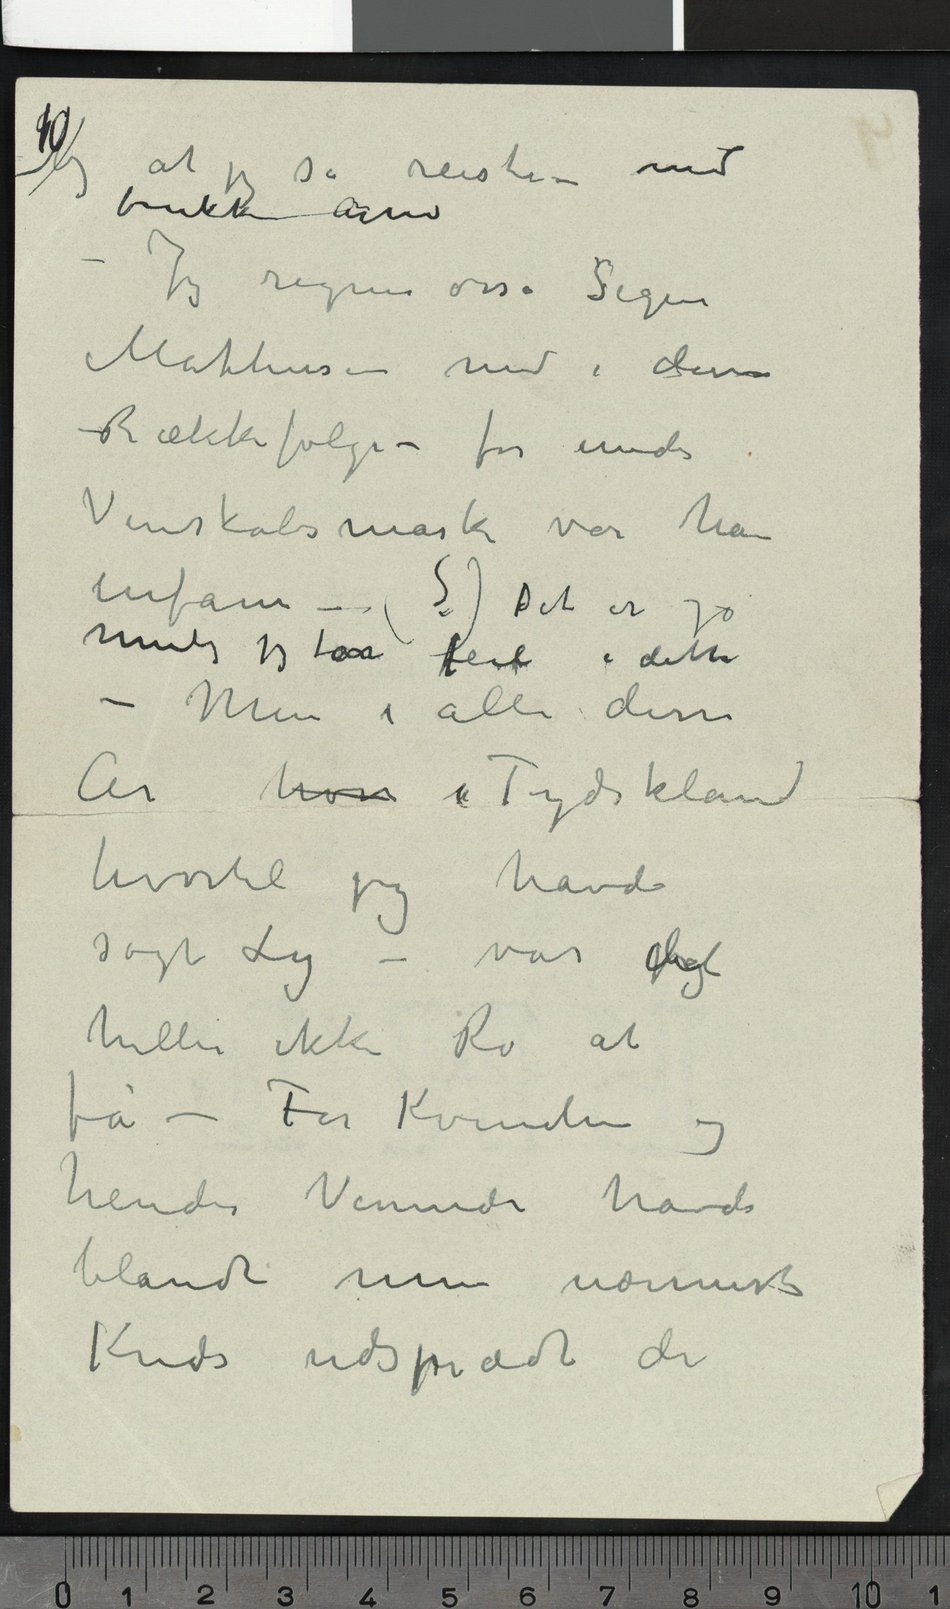 10
Og at jeg så reiste – med
brukken arm
– Jeg regner osså Sigur
Mathhiesen med i denne
Rækkefølge – for under
Venskabsmaske var han
infam – (S.) Det er jo
mulig jeg tar feil i dette
– Men i alle disse
Aar hvor i Tydskland
hvortil jeg havde
søgt Ly – var
heller ikke Ro at
få – For Kvinden og
hendes Veninde havde
blandt min nærmeste
Kreds udspredt de